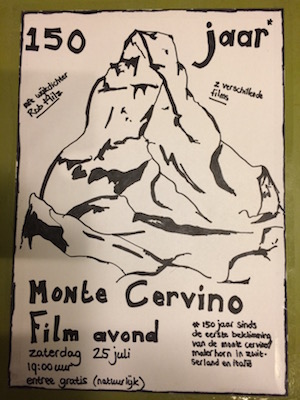 150 jaar*
met wijkdichter
Rob Hilz
2 verschillende
films
Monte Cervino
Film avond
zaterdag 25 juli
19:00 uur
entree gratis (natuurlijk)
* 150 jaar sinds
de eerste beklimming
van de monte cervino/
materhorn in zwit-
serland en Italië